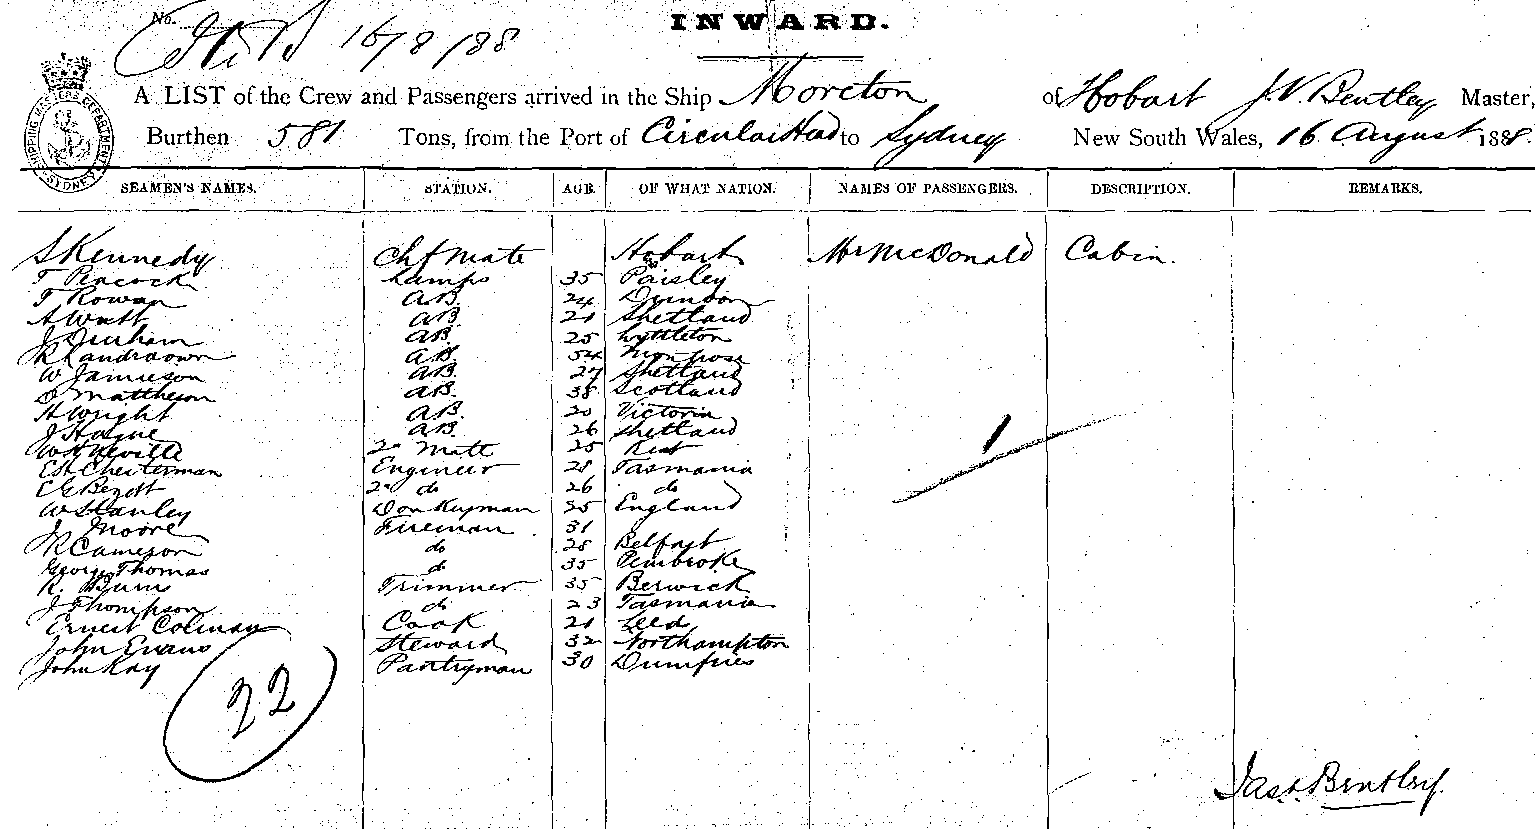 No. 16/8/88
INWARD.
A LIST of the Crew and Passengers arrived in the Ship Moreton of Hobart J.V. Bentley Master,
Burthen 581 Tons, from the Port of Circular Head to Sydney New South Wales, 16 August 1888.
SHIPPING MASTERS DEPARTMENT SYDNEY
SEAMEN'S NAMES. STATION. AGE OF WHAT NATION. NAMES OF PASSENGERS. DESCRIPTION. REMARKS.
S Kennedy Chf Mate Hobart Mr McDonald Cabin.
T Peacock Lamps 35 Paisley
T Rowan AB. 24 Dunoon
A Watt AB. 21 Shetland
J Durham AB. 25 Lyttleton
R AB. 54 Montrose
W Jamieson AB. 27 Shetland
D Mattheson AB. 38 Scotland
H Wright AB. 20 Victoria
J AB. 26 Shetland
W H Neville 2nd Mate 25 Kent
E H Chesterman Engineer 28 Tasmania
E G 2nd do 26 do
W Stanley Donkeyman 25 England
J Moore Fireman 31
R Cameron do 28 Belfast
George Thomas do 35 Pembroke
R. Burns Trimmer 35 Berwick
J Thompson do 23 Tasmania
Ernest Colman Cook 21 Leed
John Evans Steward 32 Northampton
John Kay Pantryman 30 Dumfries
1
22
Jas. Bentley